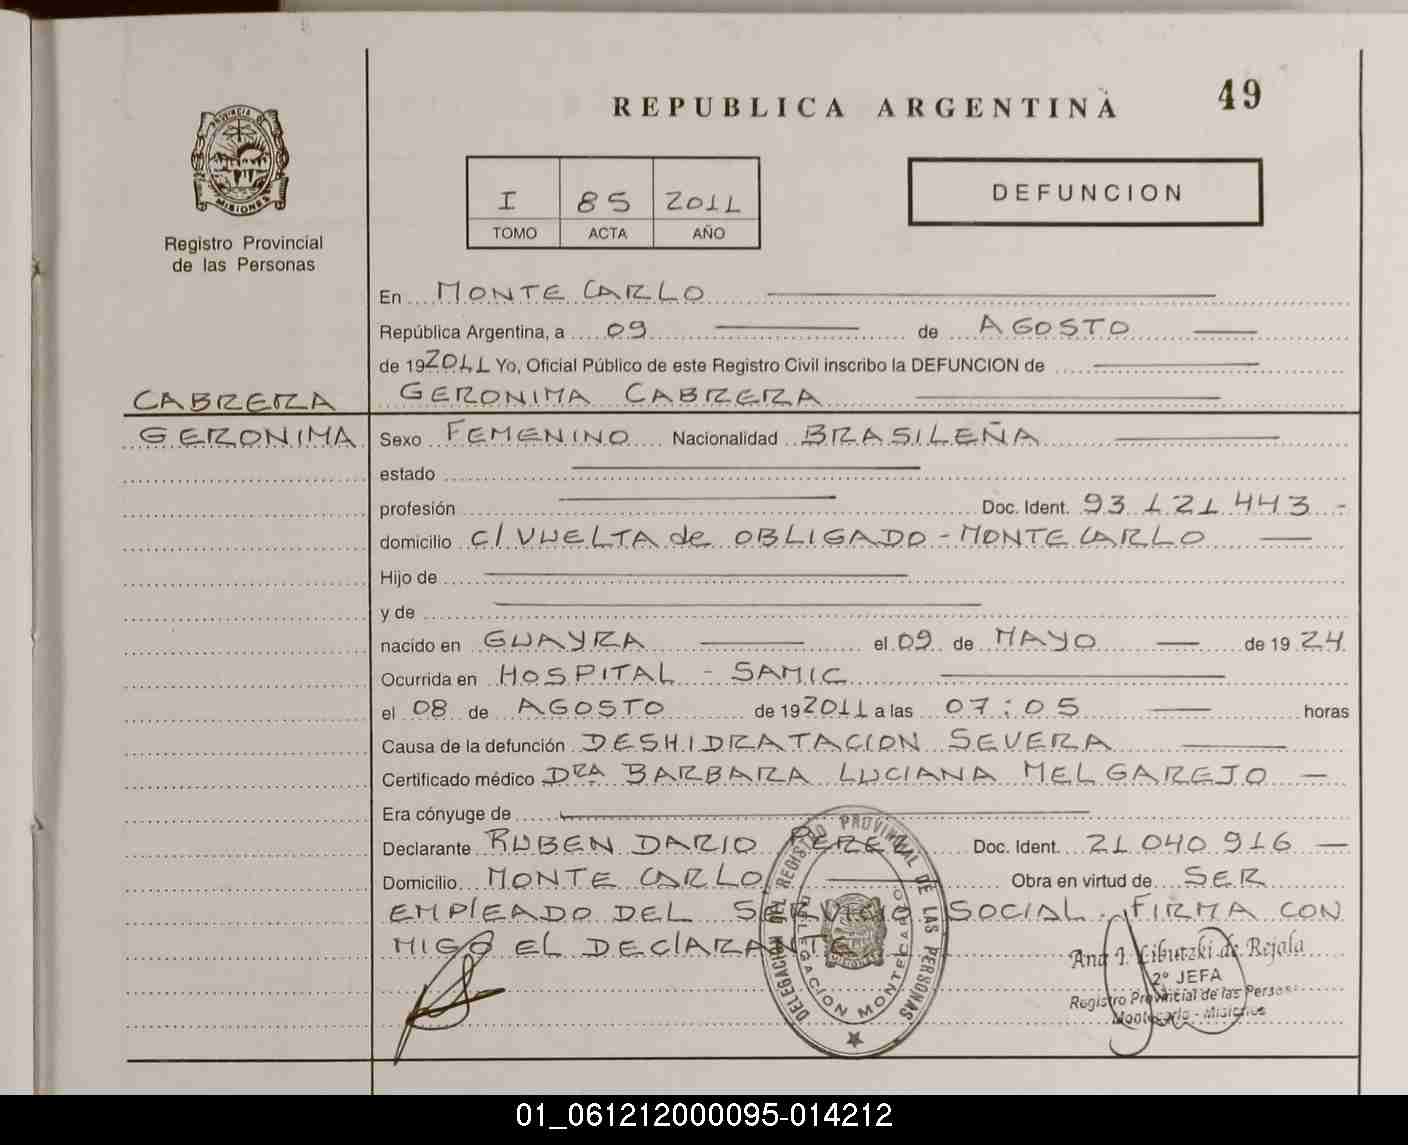 REPUBLICA ARGENTINA
49
PROVINCIA DE
MISIONES
Registro Provincial
de las Personas
I 85 2011
TOMO ACTA AÑO
DEFUNCION
En MONTE CARLO
República Argentina, a 09 de AGOSTO
de 192011 Yo, Oficial Público de este Registro Civil inscribo la DEFUNCION de
CABRERA
GERONIMA CABRERA
GERONIMA
Sexo FEMENINO Nacionalidad BRASILEÑA
estado
profesión Doc. Ident. 93 121 443 -
domicilio C/ VUELTA de OBLIGADO - MONTE CARLO
Hijo de
y de
nacido en GUAYRA el 09 de MAYO de 19 24
Ocurrida en HOSPITAL - SAMIC
el 08 de AGOSTO de 192011 a las 07:05 horas
Causa de la defunción DESHIDRATACION SEVERA
Certificado médico DRA BARBARA LUCIANA MELGAREJO
Era cónyuge de
Declarante RUBEN DARIO PEREZ Doc. Ident. 21 040 916
Domicilio MONTE CARLO Obra en virtud de SER
EMPLEADO DEL SERVICIO SOCIAL. FIRMA CON
MIGO EL DECLARANTE
DELEGACION DEL REGISTRO PROVINCIAL DE LAS PERSONAS
DELEGACION MONTECARLO
Ana I. Libutzki de Rejala
2º JEFA
Registro Provincial de las Personas
Montecarlo - Misiones
01_061212000095-014212